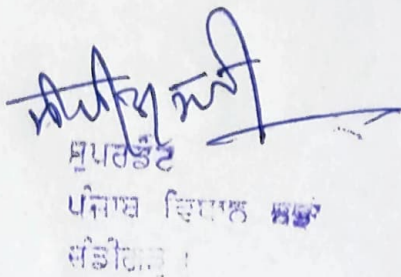 ਸੁਪਰਡੰਟ
ਪੰਜਾਬ ਵਿਧਾਨ ਸਭਾ
ਚੰਡੀਗੜ੍ਹ ।